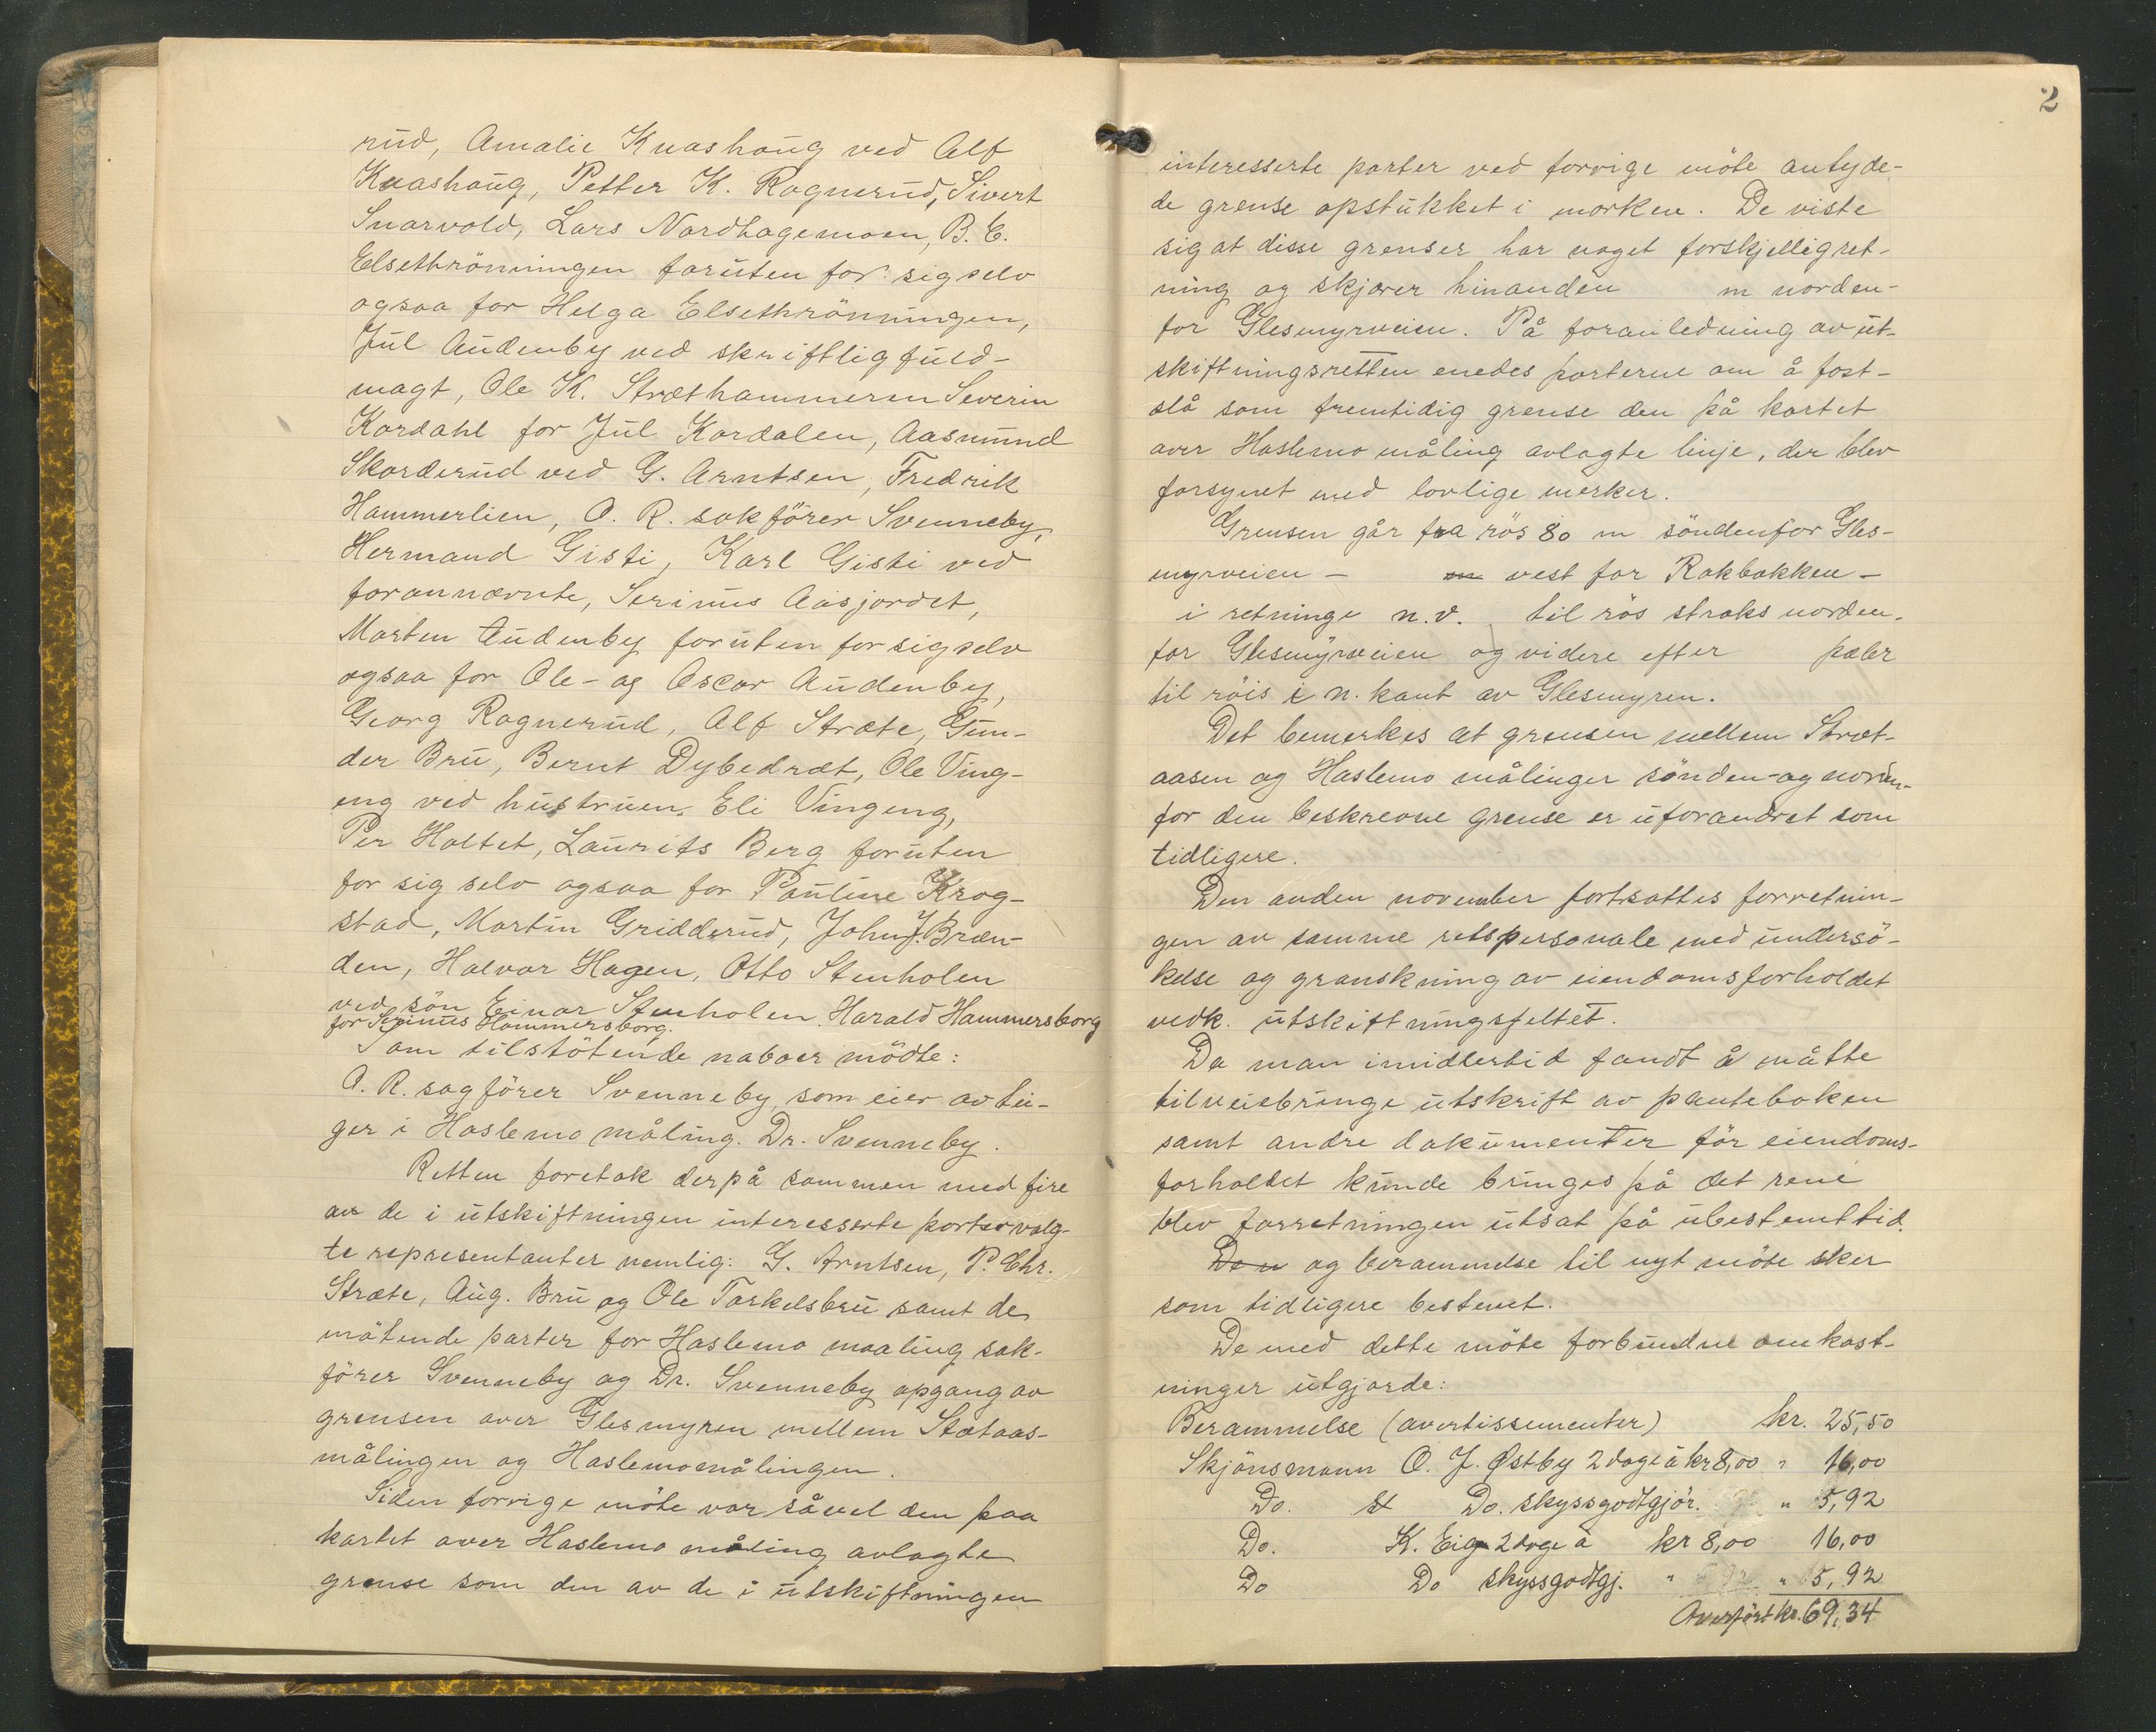 rud, Amalie Knashaug ved Alf
Knashaug, Petter K. Rognerud, Sivert
Snarvold, Lars Nordhagemoen, B. E.
Elsethrönningen foruten for sig selv
ogsaa for Helga Elsethrönningen,
Jul Audenby ved skriftlig fuld-
magt, Ole K. Stræthammeren Severin
Kordahl for Jul Kordalen, Aasmund
Skorderud ved G. Arntsen, Fredrik
Hammerlien, O. R. sakförer Svenneby,
Hermand Gisti, Karl Gisti ved
forannævnte, Serinus Aasjordet,
Morten Audenby foruten for sig selv
ogsaa for Ole- og Oscar Audenby,
Georg Rognerud, Alf Stræte, Gun-
der Bru, Bernt Dybedræt, Ole Ving-
eng ved hustruen Eli Vingeng,
Per Holtet, Laurits Berg foruten
for sig selv ogsaa for Pauline Krog-
stad, Martin Gridderud, John J. Bræn-
den, Halvor Hagen, Otto Stenholen
ved sön Einar Stenholen. Harald Hammersborg
for Serinus Hammersborg.
Som tilstötende naboer mödte:
O. R. sagförer Svenneby som eier av tei-
ger i Haslemo måling. Dr. Svenneby.
Retten foretok derpå sammen med fire
av de i utskiftningen interesserte parter valg-
te representanter nemlig: G. Arntsen, P. Chr.
Stræte, Aug. Bru og Ole Torkelsbru samt de
mötende parter for Haslemo maaling sak-
förer Svenneby og Dr. Svenneby opgang av
grensen over Glesmyren mellem Stætaas-
målingen og Haslemomålingen.
Siden forrige möte var såvel den paa
kartet over Haslemo måling avlagte
grense som den av de i utskiftningen
2
interesserte parter ved forrige möte antyde-
de grense opstukket i marken. De viste
sig at disse grenser har noget forskjellig ret-
ning og skjærer hinanden m norden-
for Glesmyrveien. På foranledning av ut-
skiftningsretten enedes parterne om å fast-
slå som fremtidig grense den på kartet
over Haslemo måling avlagte linje, der blev
forsynet med lovlige merker.
Grensen går fra rös 80 m söndenfor Gles-
myrveien - m vest for Rakbakken -
i retninge n.v. til rös straks norden-
for Glesmyrveien og videre efter pæler
til röis i n. kant av Glesmyren.
Det bemerkes at grensen mellem Stræt-
aasen og Haslemo målinger sönden- og norden-
for den beskrevne grense er uforandret som
tidligere.
Den anden november fortsattes forretnin-
gen av samme retspersonale med undersö-
kelse og granskning av eiendomsforholdet
vedk. utskiftningsfeltet.
Da man imidlertid fandt å måtte
tilveiebringe utskrift av panteboken
samt andre dokumenter för eiendoms-
forholdet kunde bringes på det rene
blev forretningen utsat på ubestemt tid.
Den og berammelse til nyt möte sker
som tidligere bestemt.
De med dette möte forbundne omkost-
ninger utgjorde:
Berammelse (avertissementer) kr. 25,50
Skjönsmann O. J. Østby 2 dage à kr 8,00 " 16,00
Do. Do. skyssgodtgjör. " 5,92
Do. K. Eig 2 dage à kr 8,00 16,00
Do Do skyssgodtgj. " " 5,92
Overfört kr. 69,34